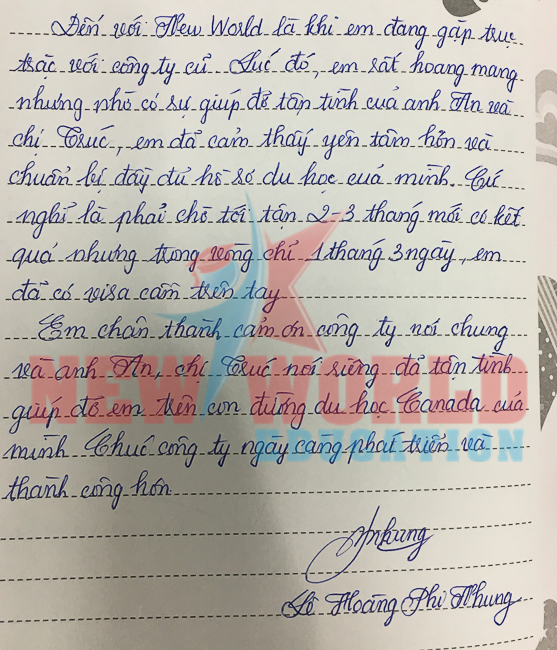 Đến với New World là khi em đang gặp trục
trặc với công ty cũ. Lúc đó, em rất hoang mang
nhưng nhờ có sự giúp đỡ tận tình của anh An và
chị Trúc, em đã cảm thấy yên tâm hơn và
chuẩn bị đầy đủ hồ sơ du học của mình. Cứ
nghĩ là phải chờ tới tận 2-3 tháng mới có kết
quả nhưng trong vòng chỉ 1 tháng 3 ngày, em
đã có visa cầm trên tay
Em chân thành cảm ơn công ty nói chung
và anh An, chị Trúc nói riêng đã tận tình
giúp đỡ em trên con đường du học Canada của
mình. Chúc công ty ngày càng phát triển và
thành công hơn
NEW WORLD
EDUCATION
Nhung
Lê Hoàng Phi Nhung